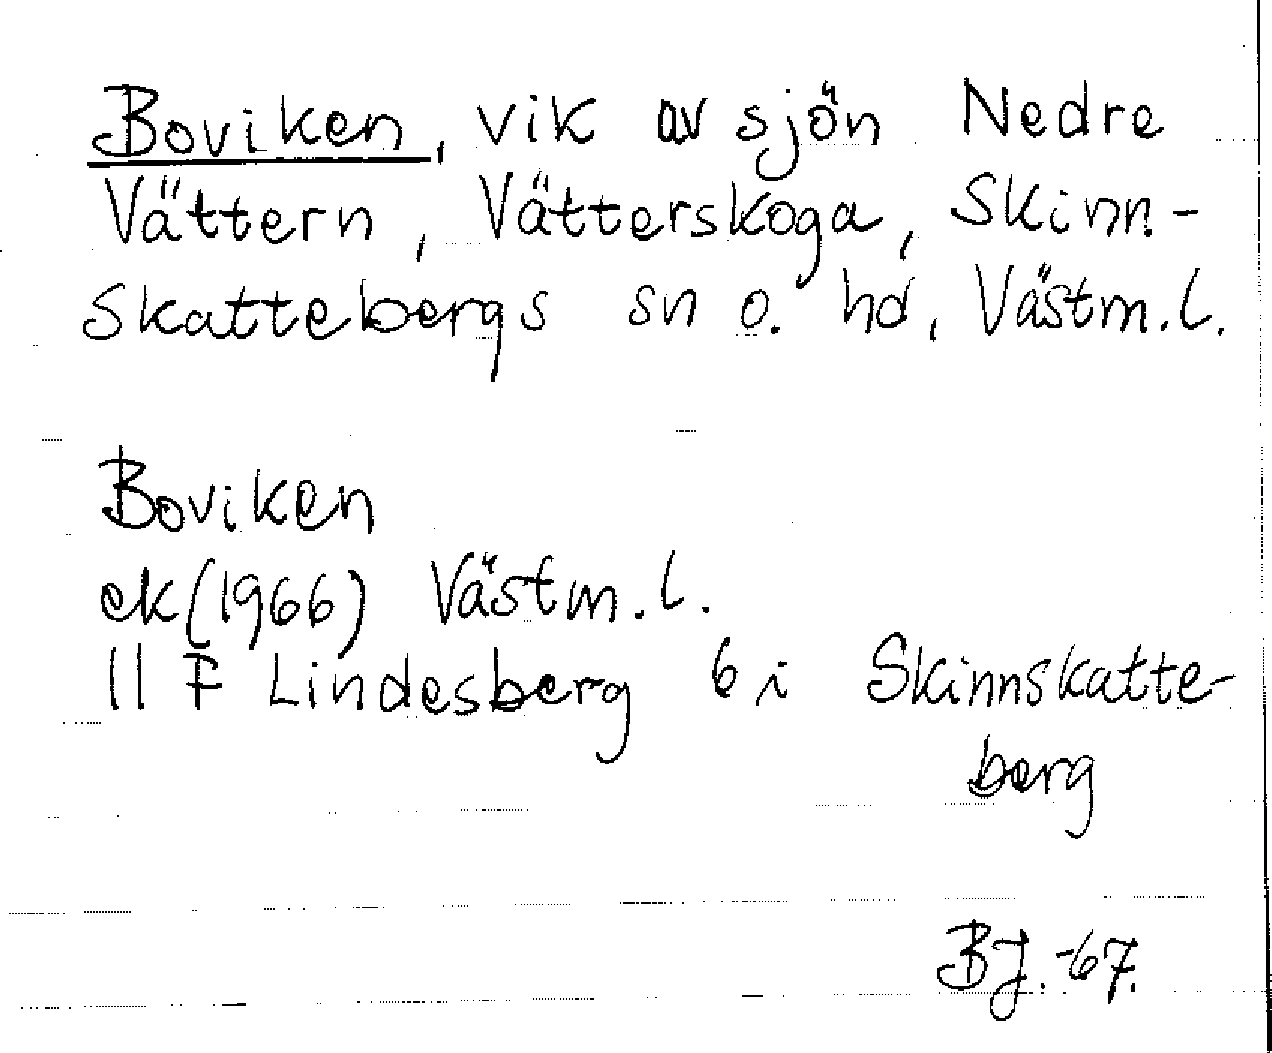 Boviken, vik av sjön Nedre
Vättern, Vätterskoga, Skinn-
skattebergs sn o. hd, Västm.l.
Boviken
ek(1966) Västm.l.
11 F Lindesberg 6 i Skinnskatte-
berg
BJ.-67.